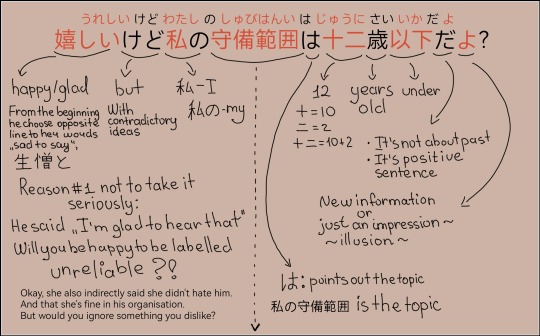 うれしい けど わたし の しゅびはんい は じゅうに さい いか だ よ
嬉しいけど私の守備範囲は十二歳以下だよ?
happy/glad
but
私-I
私の-my
From the beginning
he choose opposite
line to hey words
„sad to say",
生憎と
With
contradictory
ideas
Reason #1 not to take it
seriously:
He said „I'm glad to hear that"
Will you be happy to be labelled
unreliable ?!
Okay, she also indirectly said she didn't hate him.
And that she's fine in his organisation.
But would you ignore something you dislike?
12
十=10
二=2
十二=10+2
years
old
under
・It's not about past
・It's positive
sentence
New information
or
just an impression ~
~ illusion ~
は: points out the topic
私の守備範囲 is the topic